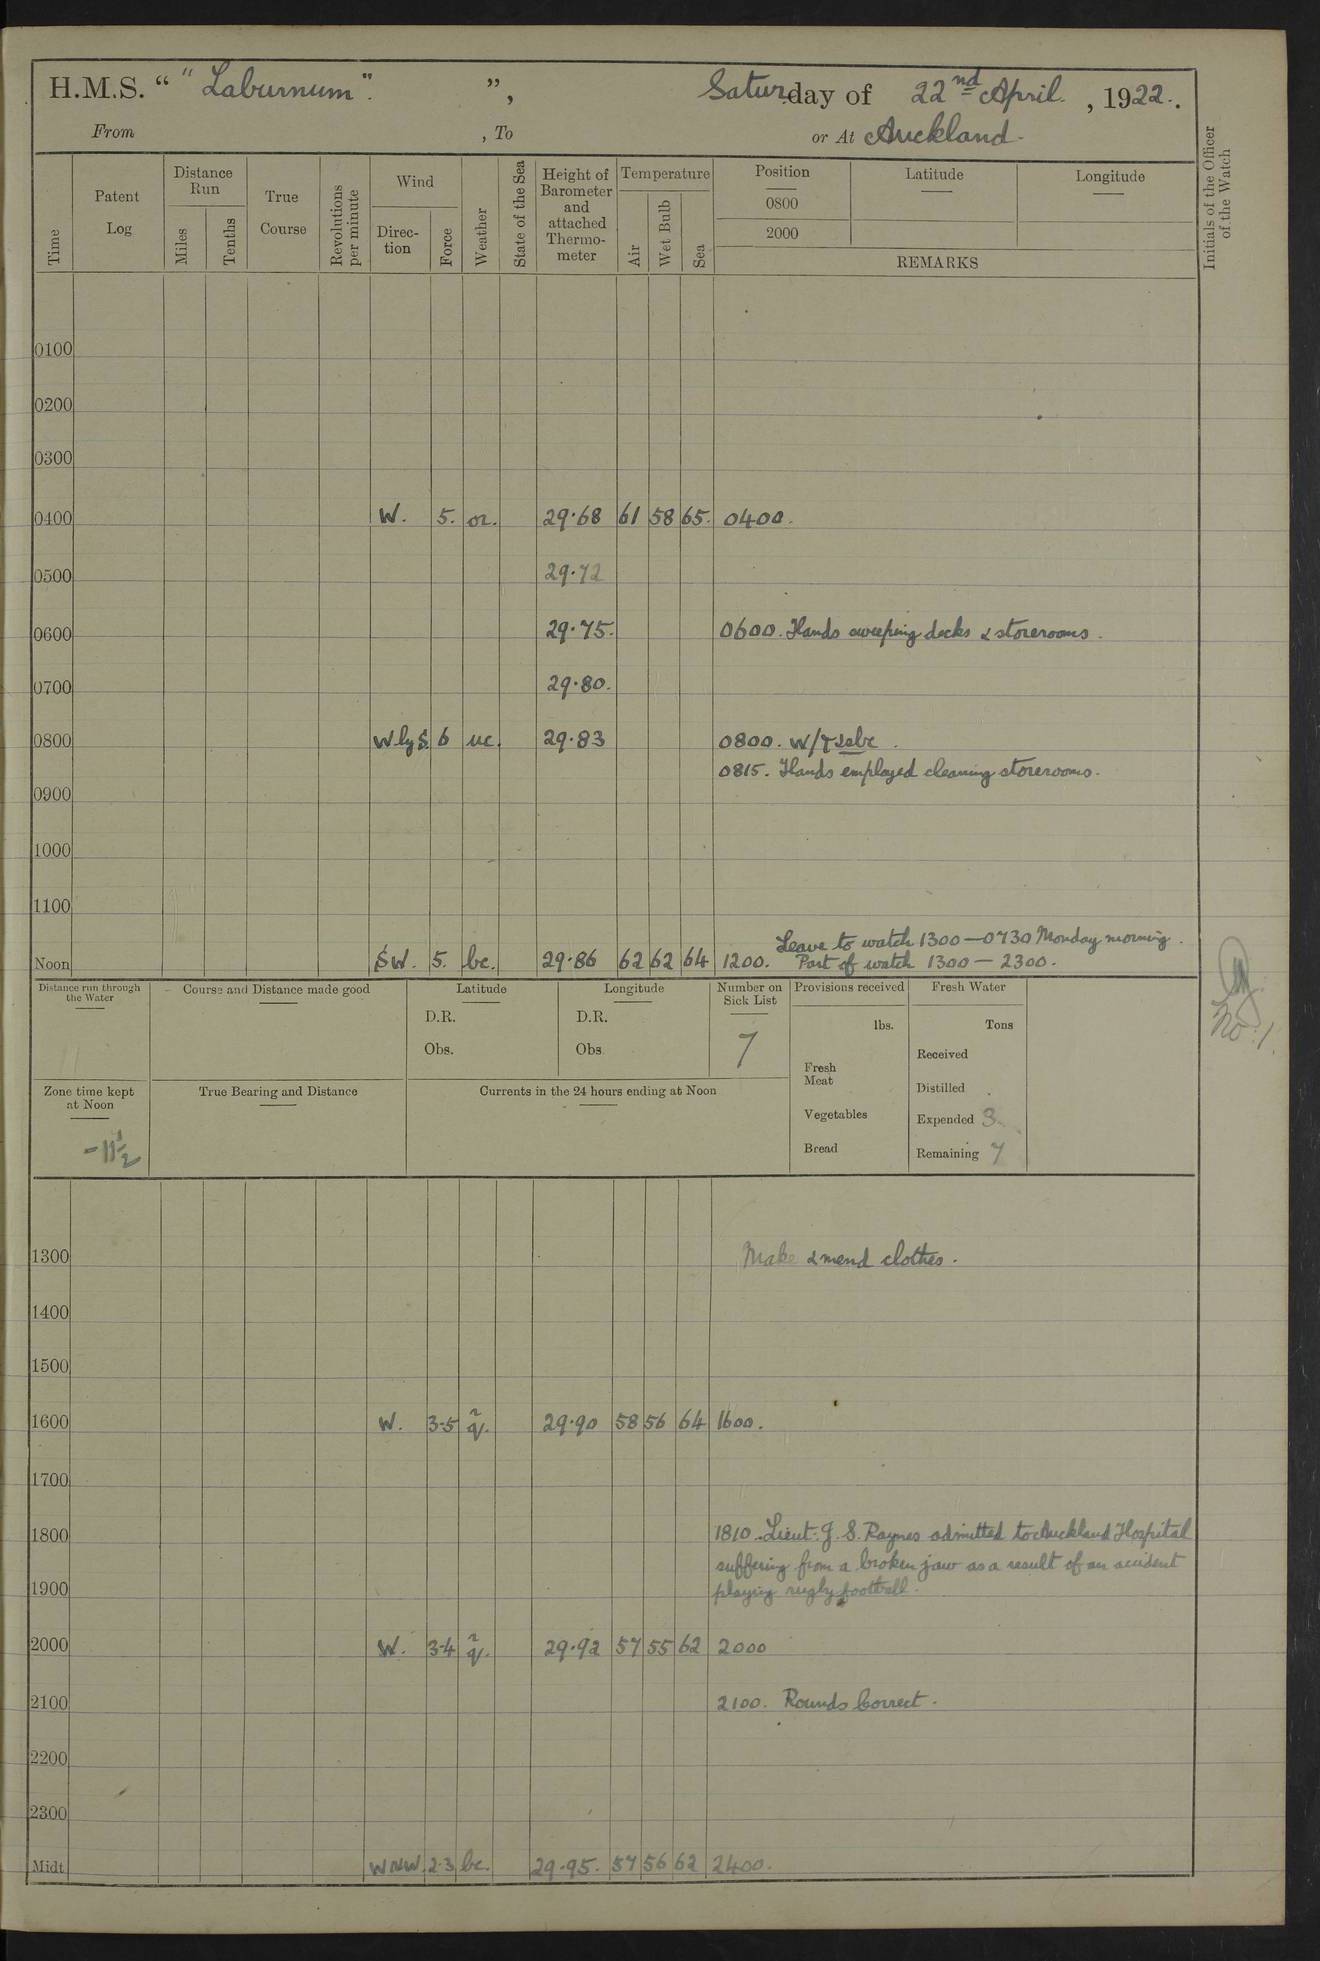 H.M.S. “ " Laburnum". ”, Saturday of 22nd April. , 1922..
From , To or At Auckland.
Time
Patent Log
Distance Run
Miles
Tenths
True Course
Revolutions per minute
Wind
Direc-tion
Force
Weather
State of the Sea
Height of Barometer and attached Thermo-meter
Temperature
Air
Wet Bulb
Sea
Position
0800
2000
Latitude
Longitude
REMARKS
Initials of the Officer of the Watch
0100
0200
0300
0400 W. 5. or. 29.68 61 58 65. 0400.
0500 29.72
0600 29.75. 0600. Hands sweeping decks & storerooms.
0700 29.80.
0800 Wly S. 6 uc. 29.83 0800. W/T
0815. Hands employed cleaning storerooms.
0900
1000
1100
Leave to watch 1300—0730 Monday morning.
Noon SW. 5. bc. 29.86 62 62 64 1200. Part of watch 1300 — 2300.
No: 1.
Distance run through the Water
Course and Distance made good
Latitude
D.R.
Obs.
Longitude
D.R.
Obs.
Number on Sick List
7
Provisions received
lbs.
Fresh Meat
Vegetables
Bread
Fresh Water
Tons
Received
Distilled
Expended 3
Remaining 7
Zone time kept at Noon
-11½
True Bearing and Distance
Currents in the 24 hours ending at Noon
1300 Make & mend clothes.
1400
1500
1600 W. 3-5 r q. 29.90 58 56 64 1600.
1700
1800 1810. Lieut. J. S. Raynes admitted to Auckland Hospital
suffering from a broken jaw as a result of an accident
1900 playing rugby football.
2000 W. 3-4 r q. 29.92 57 55 62 2000
2100 2100. Rounds Correct.
2200
2300
Midt. WNW. 2-3 bc. 29.95. 57 56 62 2400.